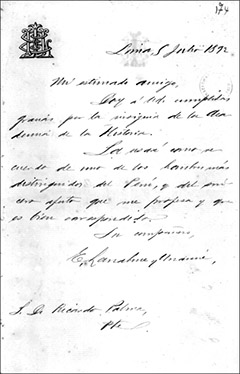 174
Lima, 5 Julio 1892
Mi estimado amigo,
Doy á Ud. cumplidas
gracias por la insignia de la Aca
demia de la Historia.
La usaré como re
cuerdo de uno de los hombres más
distinguidos del Perú, y del sin
cero afecto que me profesa y que
es bien correspondido.
Su compañero,
E. Larrabure y Unanue
S. D. Ricardo Palma
Pte.